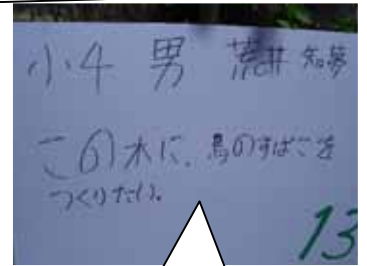 小4 男 荒井 知夢
この木に、鳥のすばこを
つくりたい。
13